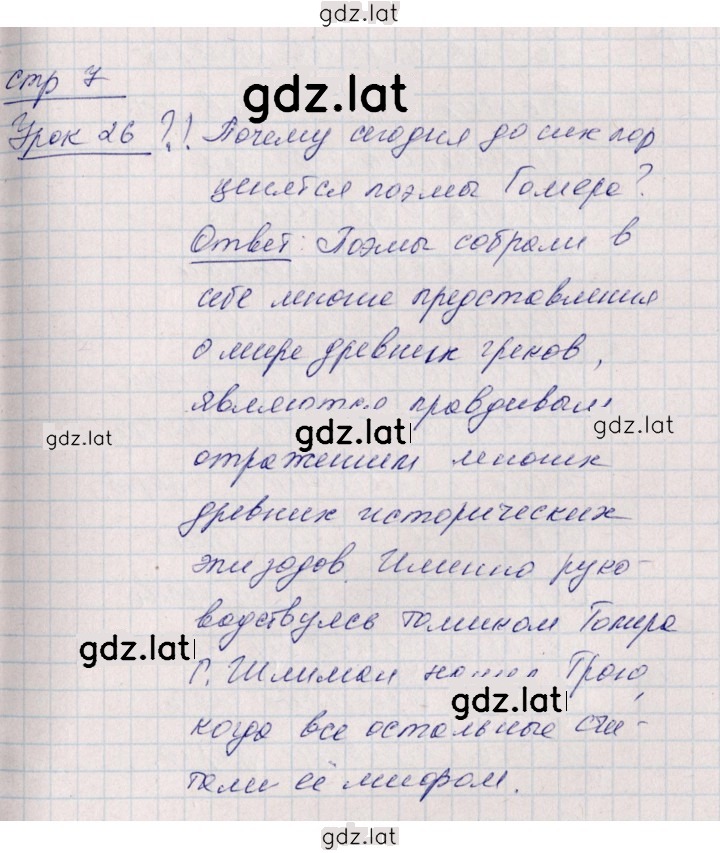 gdz.lat
стр 7
gdz.lat
Урок 26 ?! Почему сегодня до сих пор
ценятся поэмы Гомера?
Ответ: Поэмы собрали в
себе многие представления
о мире древних греков,
являются правдивым
gdz.lat gdz.lat gdz.lat
отражением многих
древних исторических
эпизодов. Именно руко-
водствуясь томиком Гомера
gdz.lat
Г. Шлиман нашел Трою,
gdz.lat
когда все остальные счи-
тали её мифом.
gdz.lat